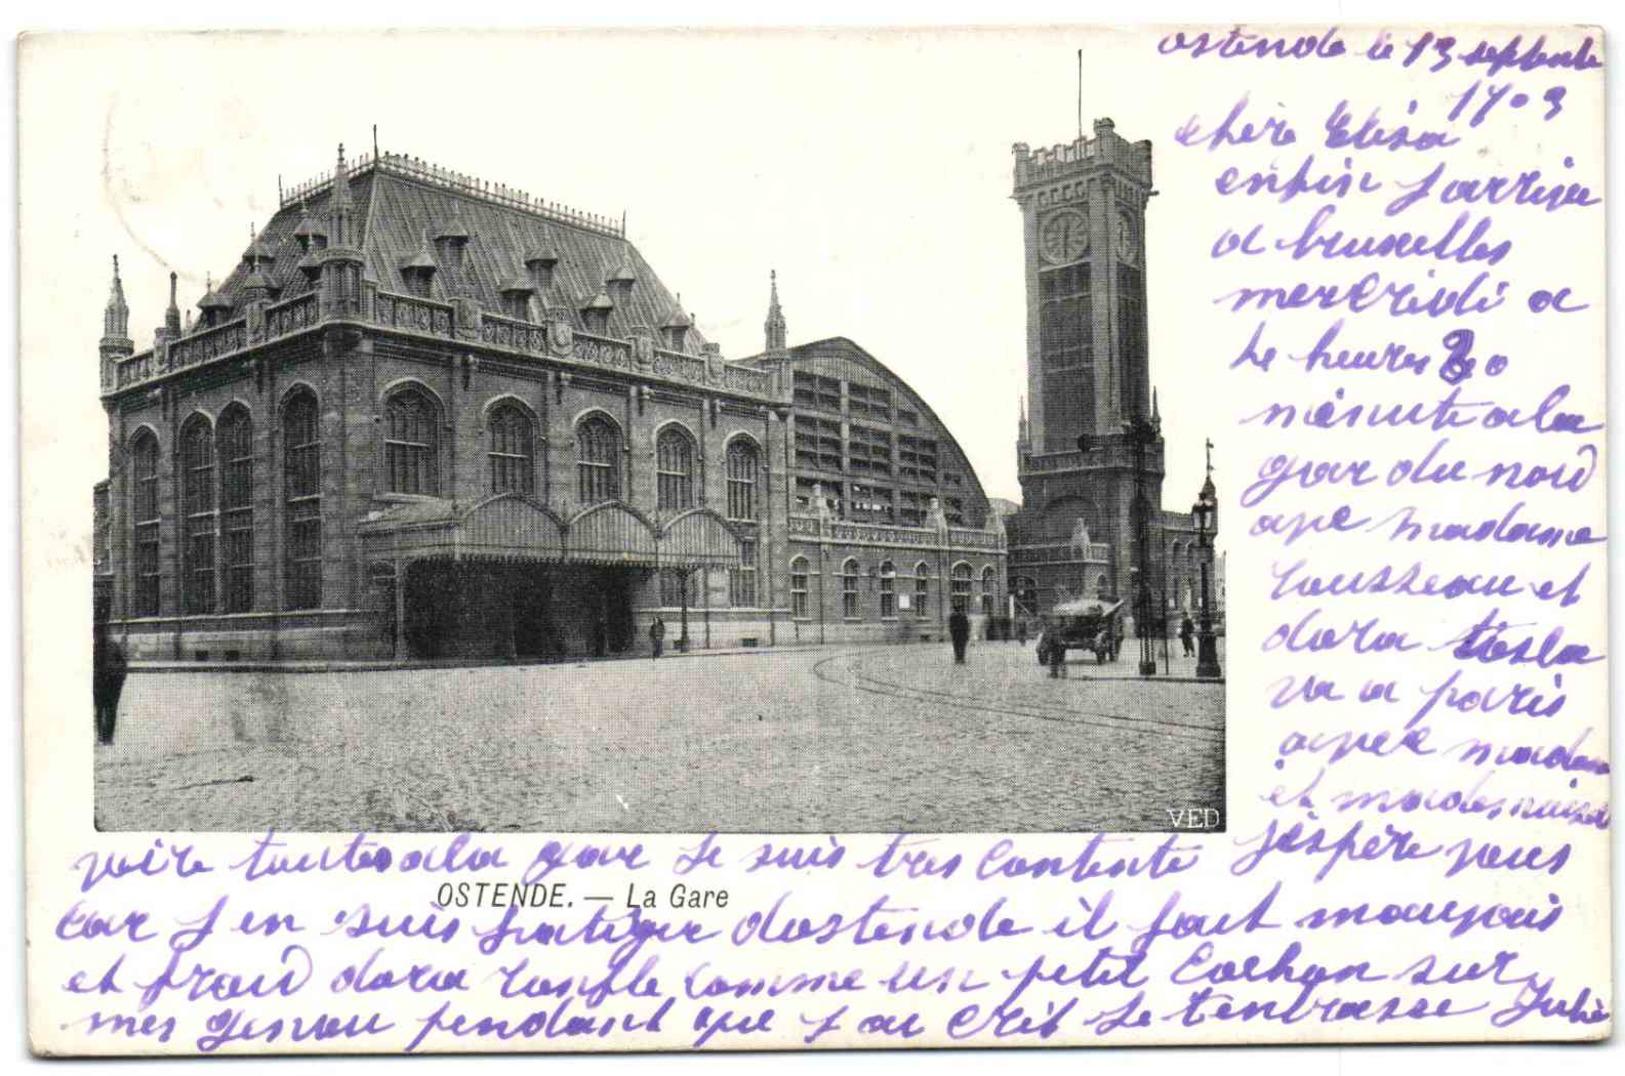 ostende le 13 septembre
1903
chere Elisa
enfin j arrive
a bruxelles
mercridi a
heures 30
minute a la
gar du nord
avec madame
rousseau et
dora
va a paris
avec madame
et mademoiselle
j'éspère vous
voire toutes a la gar je suis tres contente
car j en suis fatiguer dostende il fait mauvais
et froid dora ronfle comme un petit cochon sur
mes genou pendant que j ai crit je tenbrasse Julie
VED
OSTENDE. — La Gare